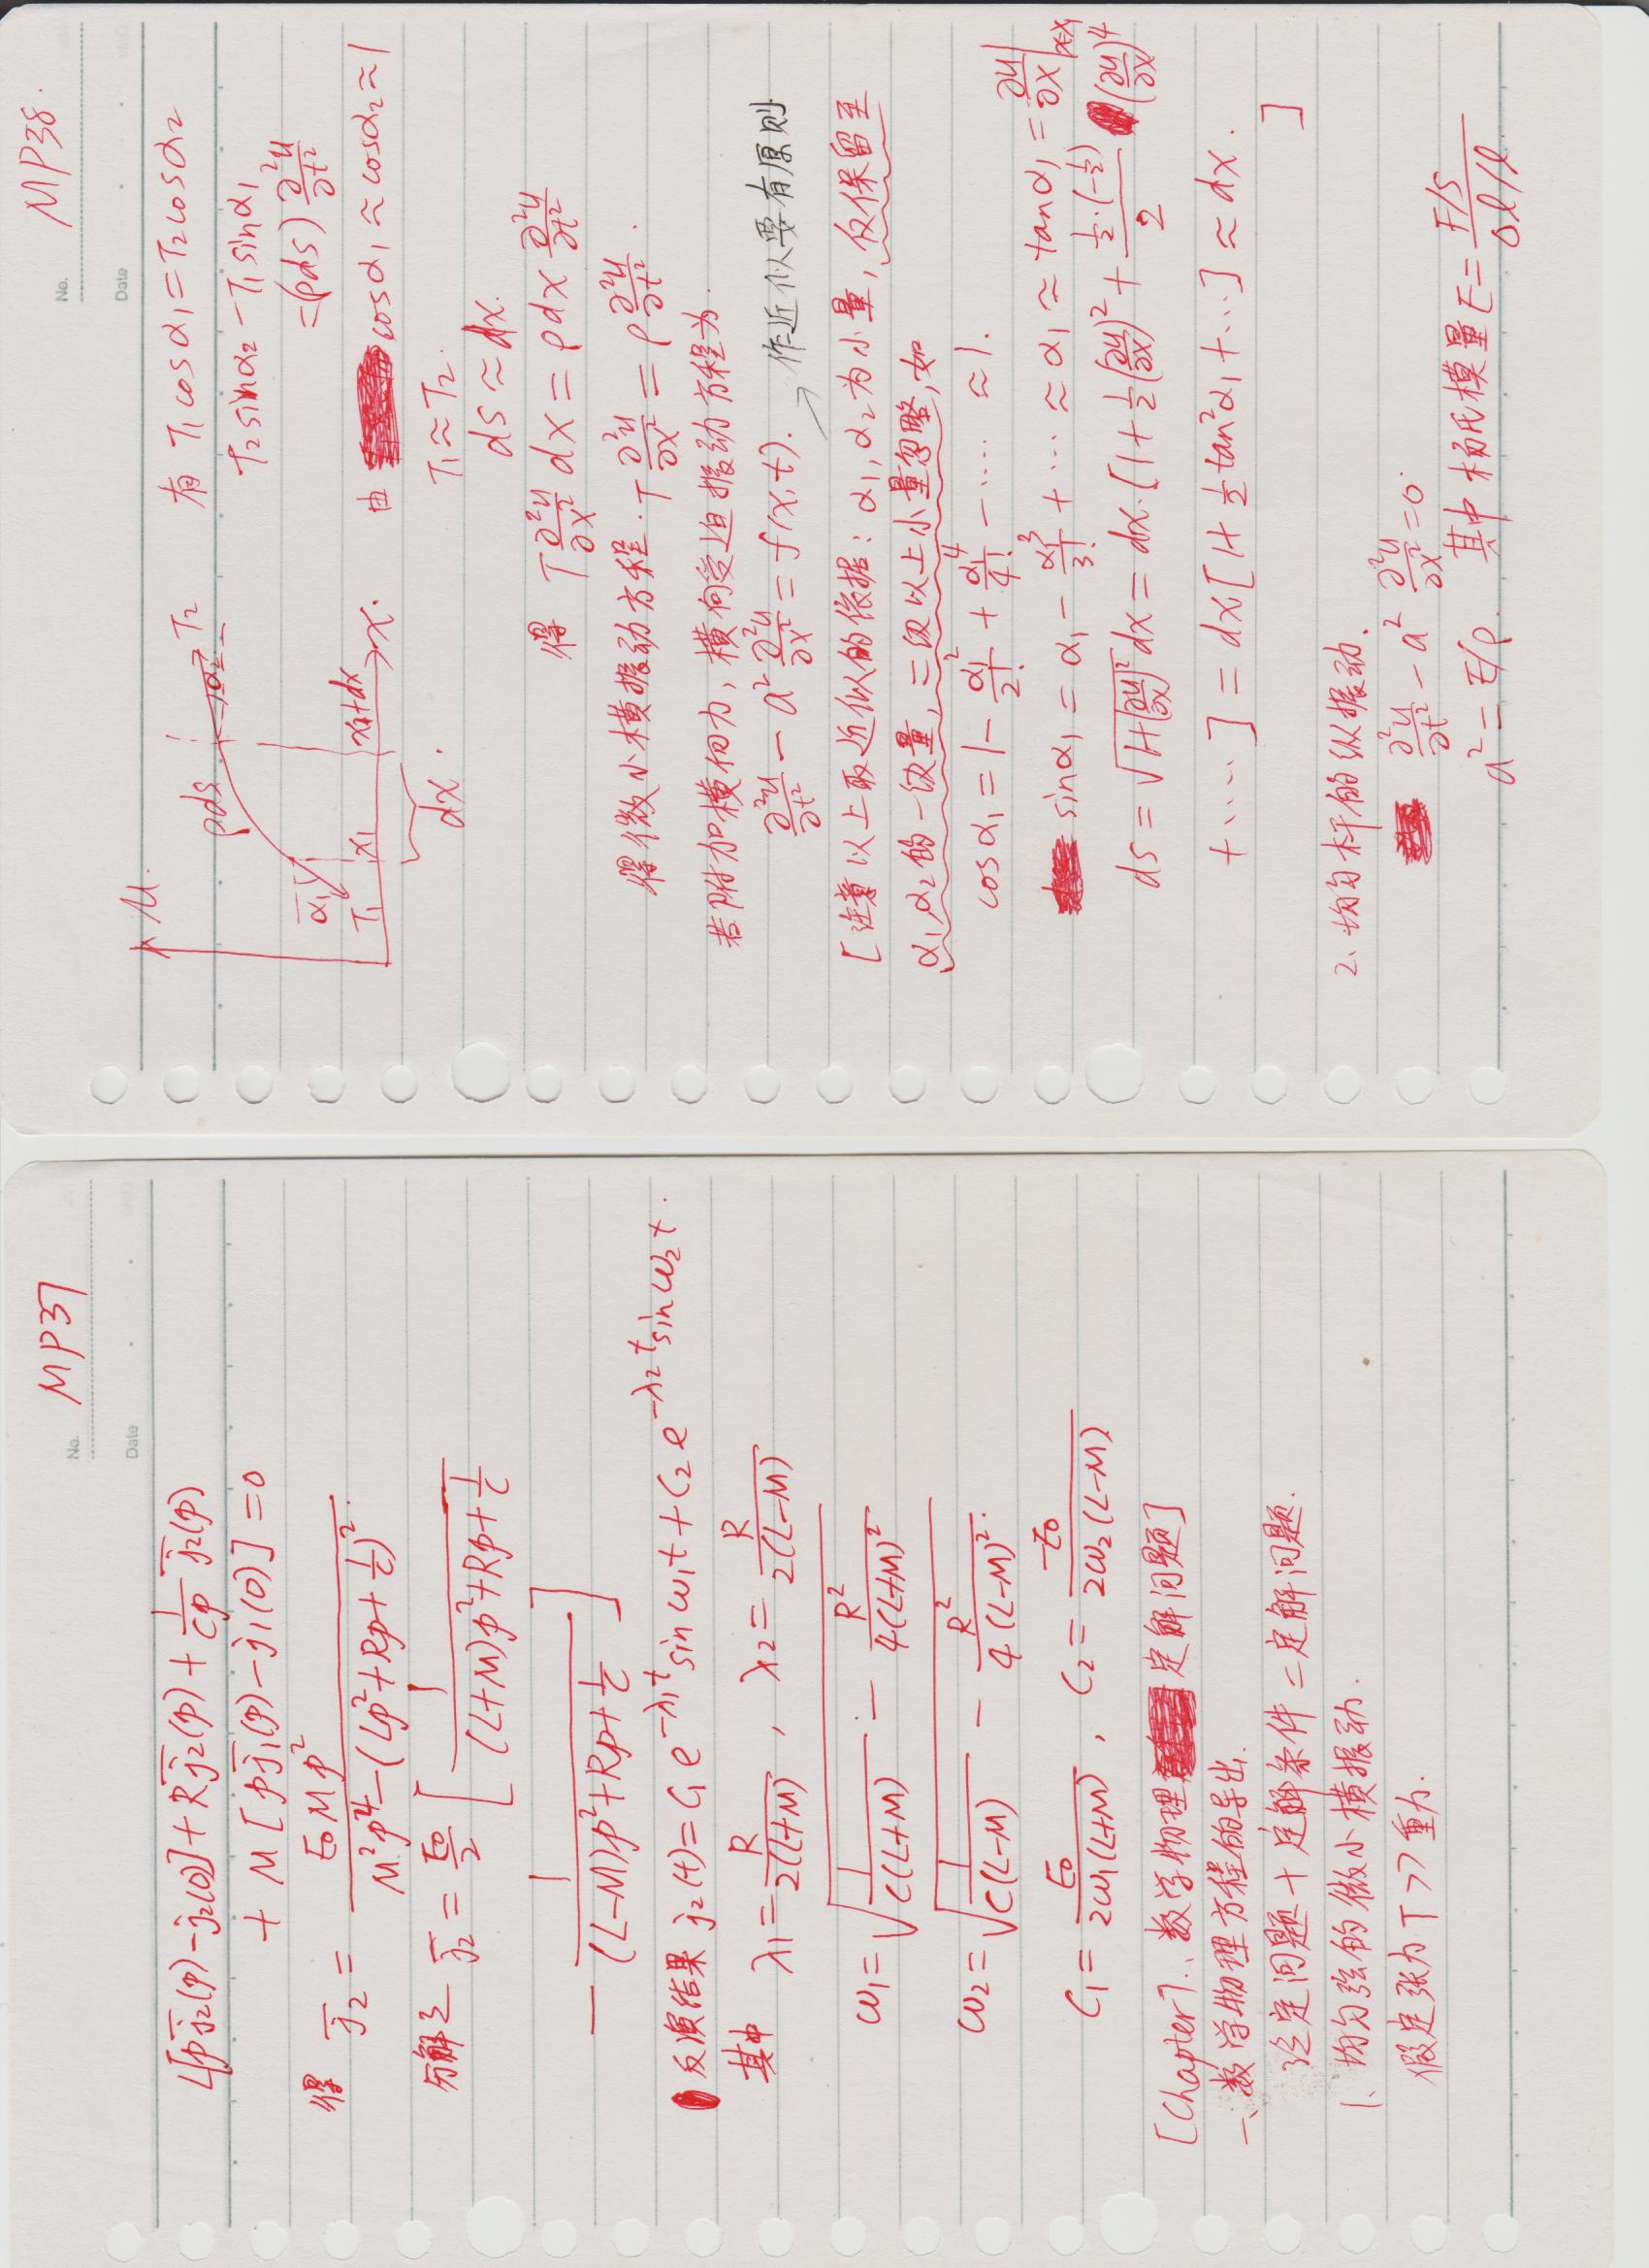 No. MP37
Date
L[pj̄₂(p)-j₂(0)]+Rj̄₂(p)+\frac{1}{Cp} j̄₂(p)
+ M[pj̄₁(p)-j₁(0)]=0
得 j̄₂ = \frac{E₀Mp²}{M²p⁴-(Lp²+Rp+\frac{1}{C})²}.
分解之 j̄₂ = \frac{E₀}{2} [ \frac{1}{(L+M)p²+Rp+\frac{1}{C}}
- \frac{1}{(L-M)p²+Rp+\frac{1}{C}} ]
反演结果 j₂(t)=C₁e^{-λ₁t}sinω₁t+C₂e^{-λ₂t}sinω₂t.
其中 λ₁=\frac{R}{2(L+M)}, λ₂=\frac{R}{2(L-M)}
ω₁=\sqrt{\frac{1}{C(L+M)} - \frac{R²}{4(L+M)²}}
ω₂=\sqrt{\frac{1}{C(L-M)} - \frac{R²}{4(L-M)²}}.
C₁=\frac{E₀}{2ω₁(L+M)}, C₂=\frac{-E₀}{2ω₂(L-M)}
[Chapter7.、数学物理定解问题]
一、数学物理方程的导出.
泛定问题+定解条件=定解问题.
1、均匀弦的微小横振动.
假定张力T>>重力.
No. MP38.
Date
u.
ρds
α₂
T₂
α₁
T₁
x₁
x₁+dx
x.
dx.
有 T₁cosα₁=T₂cosα₂
T₂sinα₂-T₁sinα₁
=(ρds)\frac{∂²u}{∂t²}
由 cosα₁≈cosα₂≈1
T₁≈T₂.
ds≈dx.
得 T\frac{∂²u}{∂x²}dx=ρdx\frac{∂²u}{∂t²}
得微小横振动方程. T\frac{∂²u}{∂x²}=ρ\frac{∂²u}{∂t²}.
若附加横向力,横向受迫振动方程为.
\frac{∂²u}{∂t²}-a²\frac{∂²u}{∂x²}=f(x,t).
作近似要有原则
[注意以上取近似的依据:α₁,α₂为小量,仅保留至
α₁,α₂的一级量,二级以上小量忽略,如
cosα₁=1-\frac{α₁²}{2!}+\frac{α₁⁴}{4!}-…. ≈1.
sinα₁=α₁-\frac{α₁³}{3!}+…≈α₁≈tanα₁=\frac{∂u}{∂x}|_{x=x₁}
ds=\sqrt{1+(\frac{∂u}{∂x})²}dx=dx.[1+\frac{1}{2}(\frac{∂u}{∂x})²+\frac{\frac{1}{2}·(-\frac{1}{2})}{2}(\frac{∂u}{∂x})⁴
+…..]=dx[1+\frac{1}{2}tan²α₁+…]≈dx.
]
2、均匀杆的纵振动.
\frac{∂²u}{∂t²}-a²\frac{∂²u}{∂x²}=0.
a²=E/ρ. 其中杨氏模量E=\frac{F/S}{Δl/l}